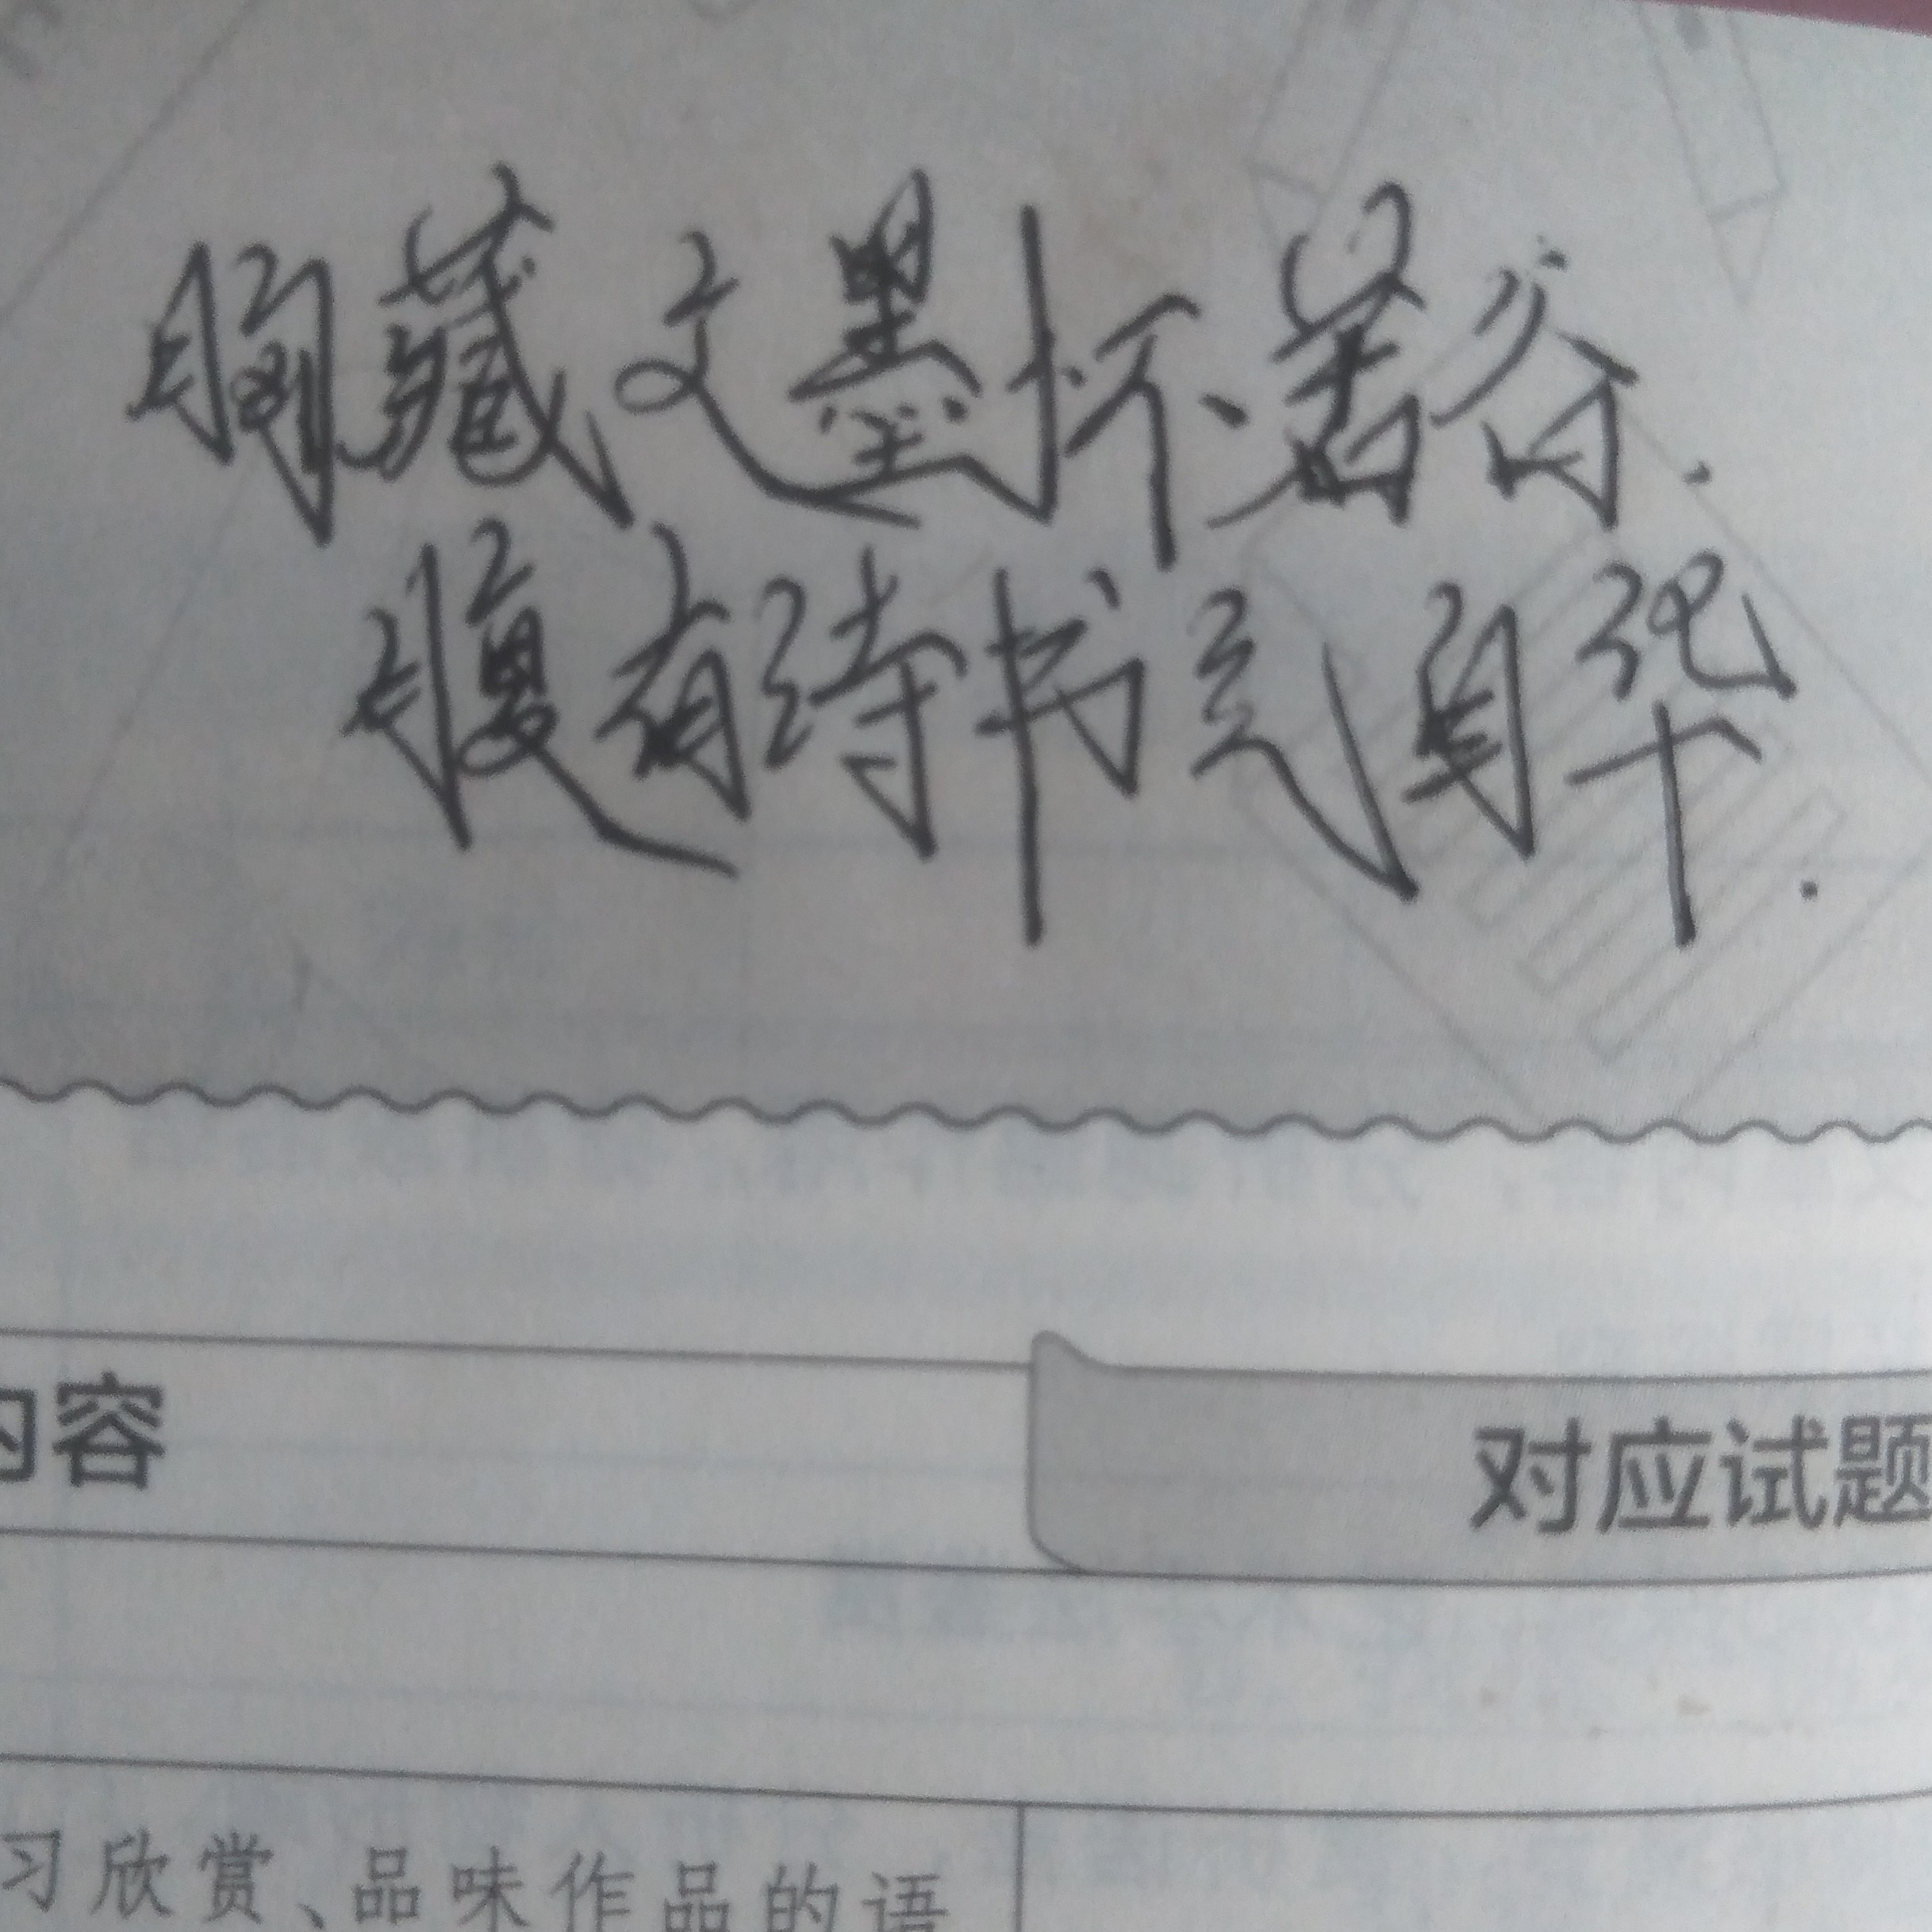 胸藏文墨怀若谷.
腹有诗书气自华.
内容
对应试题
习欣赏、品味作品的语